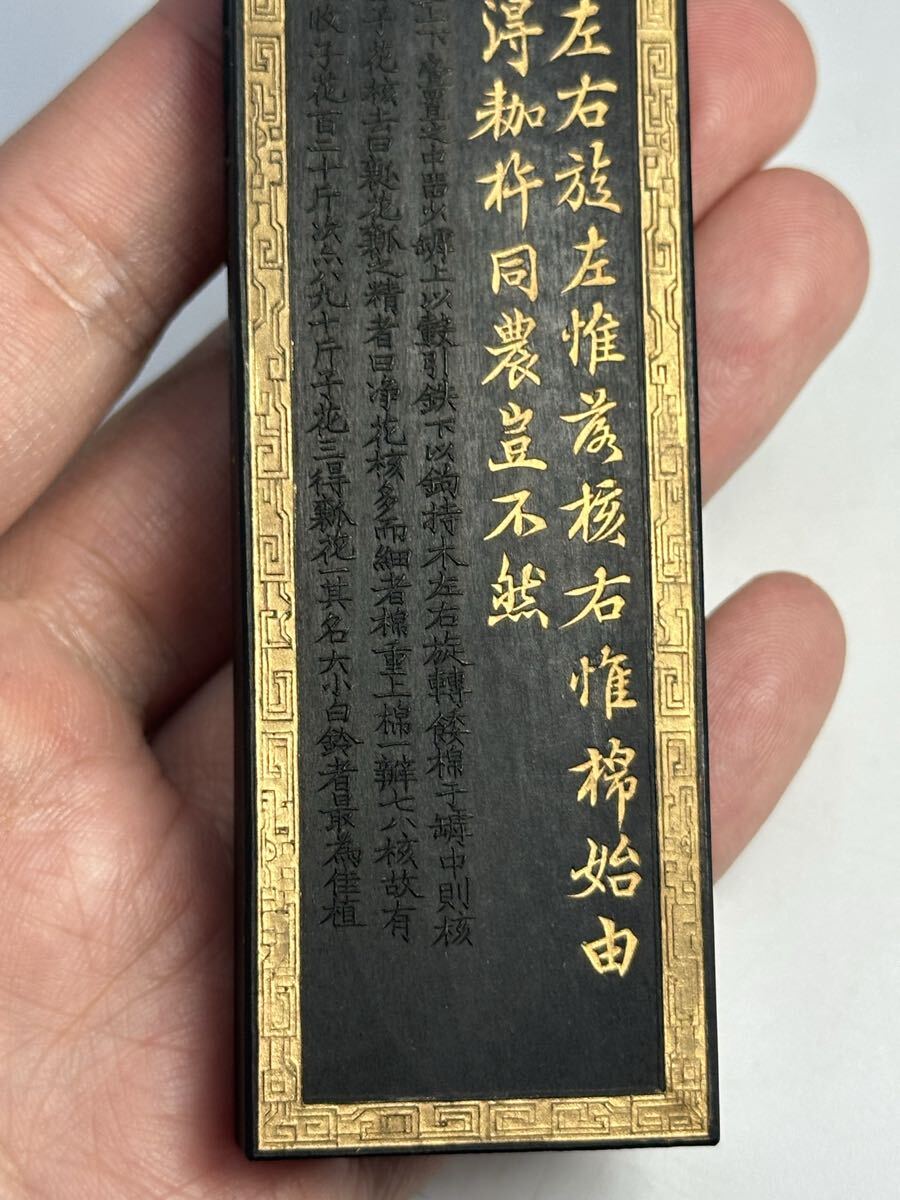 左右旋左惟落核右惟棉始由
淂耞杵同農豈不然
上下疊置之中留以罅上以鼓引鉄下以鈎持木左右旋轉餧棉于罅中則核
子花核去曰瓤花瓤之精者曰净花核多而細者棉重上棉一瓣七八核故有
收子花百二十斤次亦八九十斤子花三得瓤花一其名大小白鈴者最為佳植